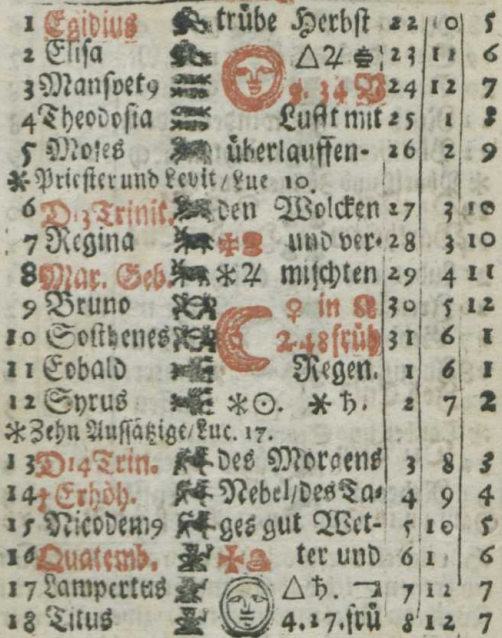 1 Egidius trübe Herbst 22 10 5
2 Elisa △ ♃ 23 11 6
3 Mansvet9 9. 34 24 12 7
4 Theodosia Lufft mit 25 1 8
5 Moses überlauffen- 26 2 9
✻ Priester und Levit/Luc 10.
6 D13 Trinit. den Wolcken 27 3 10
7 Regina und ver- 28 3 10
8 Mar. Geb. ✻ ♃ mischten 29 4 11
9 Bruno ♀ in ♌ 30 5 12
10 Sosthenes 2.48 früh 31 6 1
11 Eobald Regen. 1 6 1
12 Syrus ✻ ☉. ✻ ♄. 2 7 2
✻ Zehn Aussätzige/Luc. 17.
13 D14 Trin. des Morgens 3 8 3
14 † Erhöh. Nebel/des Ta- 4 9 4
15 Nicodem9 ges gut Wet- 5 10 5
16 Quatemb. ter und 6 11 6
17 Lampertus △ ♄. 7 12 7
18 Titus 4.17.frü 8 12 7